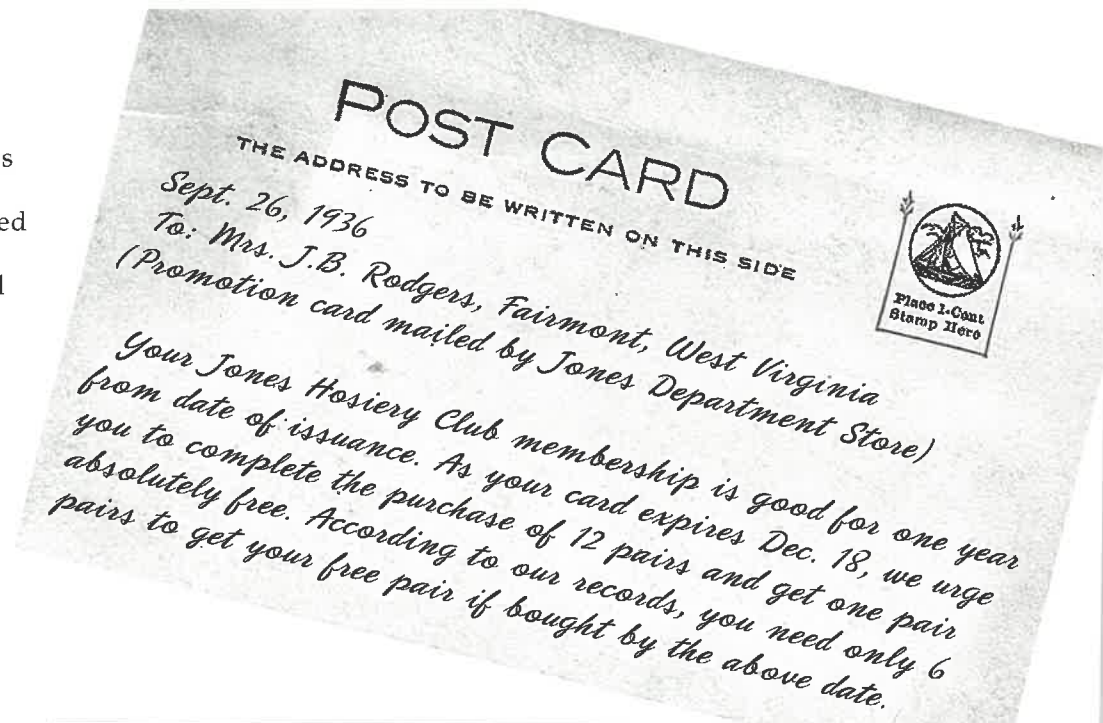 s
ed
l
POST CARD
THE ADDRESS TO BE WRITTEN ON THIS SIDE
Place 1-Cent
Stamp Here
Sept. 26, 1936
To: Mrs. J.B. Rodgers, Fairmont, West Virginia
(Promotion card mailed by Jones Department Store)
Your Jones Hosiery Club membership is good for one year
from date of issuance. As your card expires Dec. 18, we urge
you to complete the purchase of 12 pairs and get one pair
absolutely free. According to our records, you need only 6
pairs to get your free pair if bought by the above date.